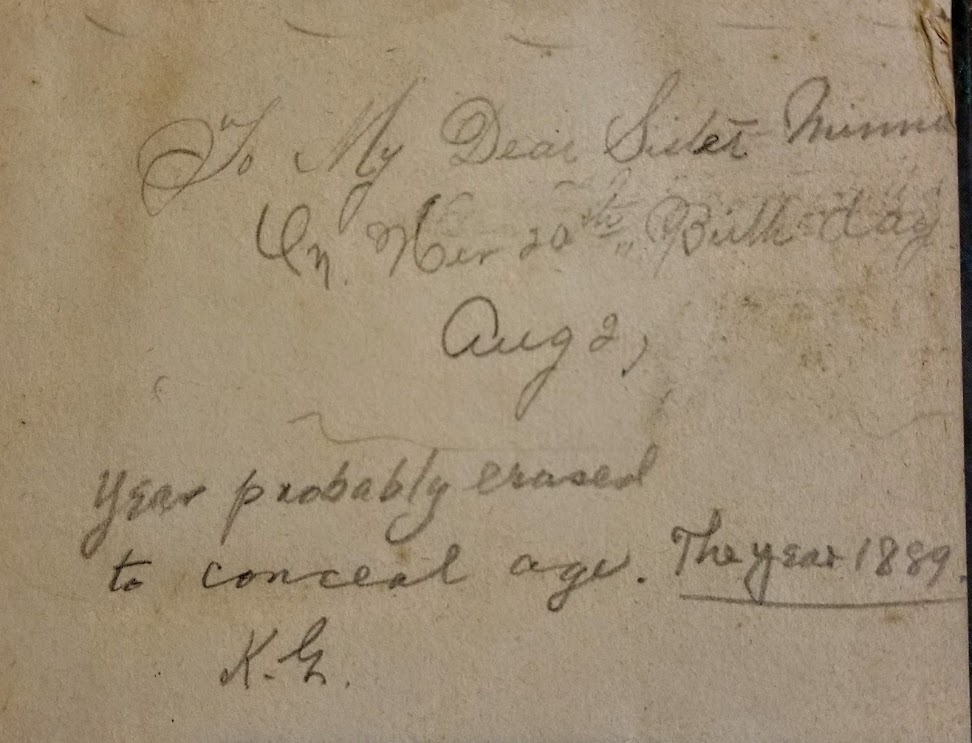 To My Dear Sister Minnie
On Her 20th Birth day
Aug 2,
Year probably erased
to conceal age. The year 1889.
K.G.